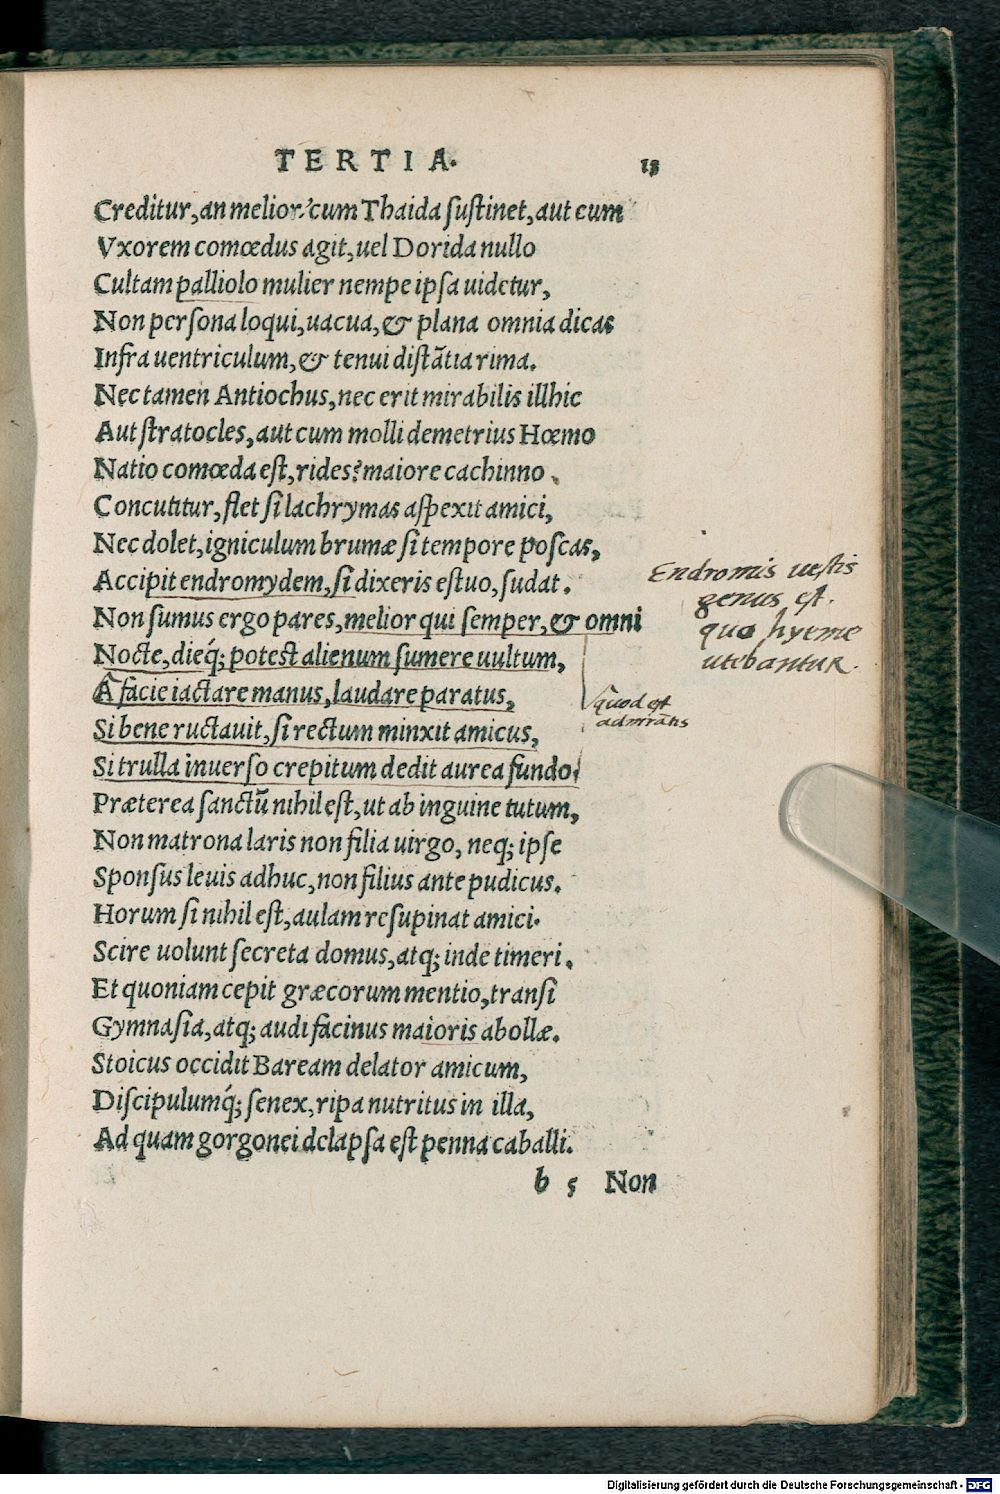 TERTIA. 13
Creditur, an melior? cum Thaida sustinet, aut cum
Vxorem comœdus agit, uel Dorida nullo
Cultam palliolo mulier nempe ipsa uidetur,
Non persona loqui, uacua, & plana omnia dicas
Infra uentriculum, & tenui distātia rima.
Nec tamen Antiochus, nec erit mirabilis illhic
Aut stratocles, aut cum molli demetrius Hœmo
Natio comœda est, rides? maiore cachinno.
Concutitur, flet si lachrymas aspexit amici,
Nec dolet, igniculum brumæ si tempore poscas,
Accipit endromydem, si dixeris estuo, sudat.
Non sumus ergo pares, melior qui semper, & omni
Nocte, dieq́; potest alienum sumere uultum,
 facie iactare manus, laudare paratus,
Si bene ructauit, si rectum minxit amicus,
Si trulla inuerso crepitum dedit aurea fundo,
Præterea sanctū nihil est, ut ab inguine tutum,
Non matrona laris non filia uirgo, neq; ipse
Sponsus leuis adhuc, non filius ante pudicus.
Horum si nihil est, aulam resupinat amici.
Scire uolunt secreta domus, atq; inde timeri.
Et quoniam cepit græcorum mentio, transi
Gymnasia, atq; audi facinus maioris abollæ.
Stoicus occidit Baream delator amicum,
Discipulumq́; senex, ripa nutritus in illa,
Ad quam gorgonei delapsa est penna caballi.
b 5 Non
Endromis uestis
genus est.
quo hyeme
utebantur.
quod est
admirātis
Digitalisierung gefördert durch die Deutsche Forschungsgemeinschaft - DFG